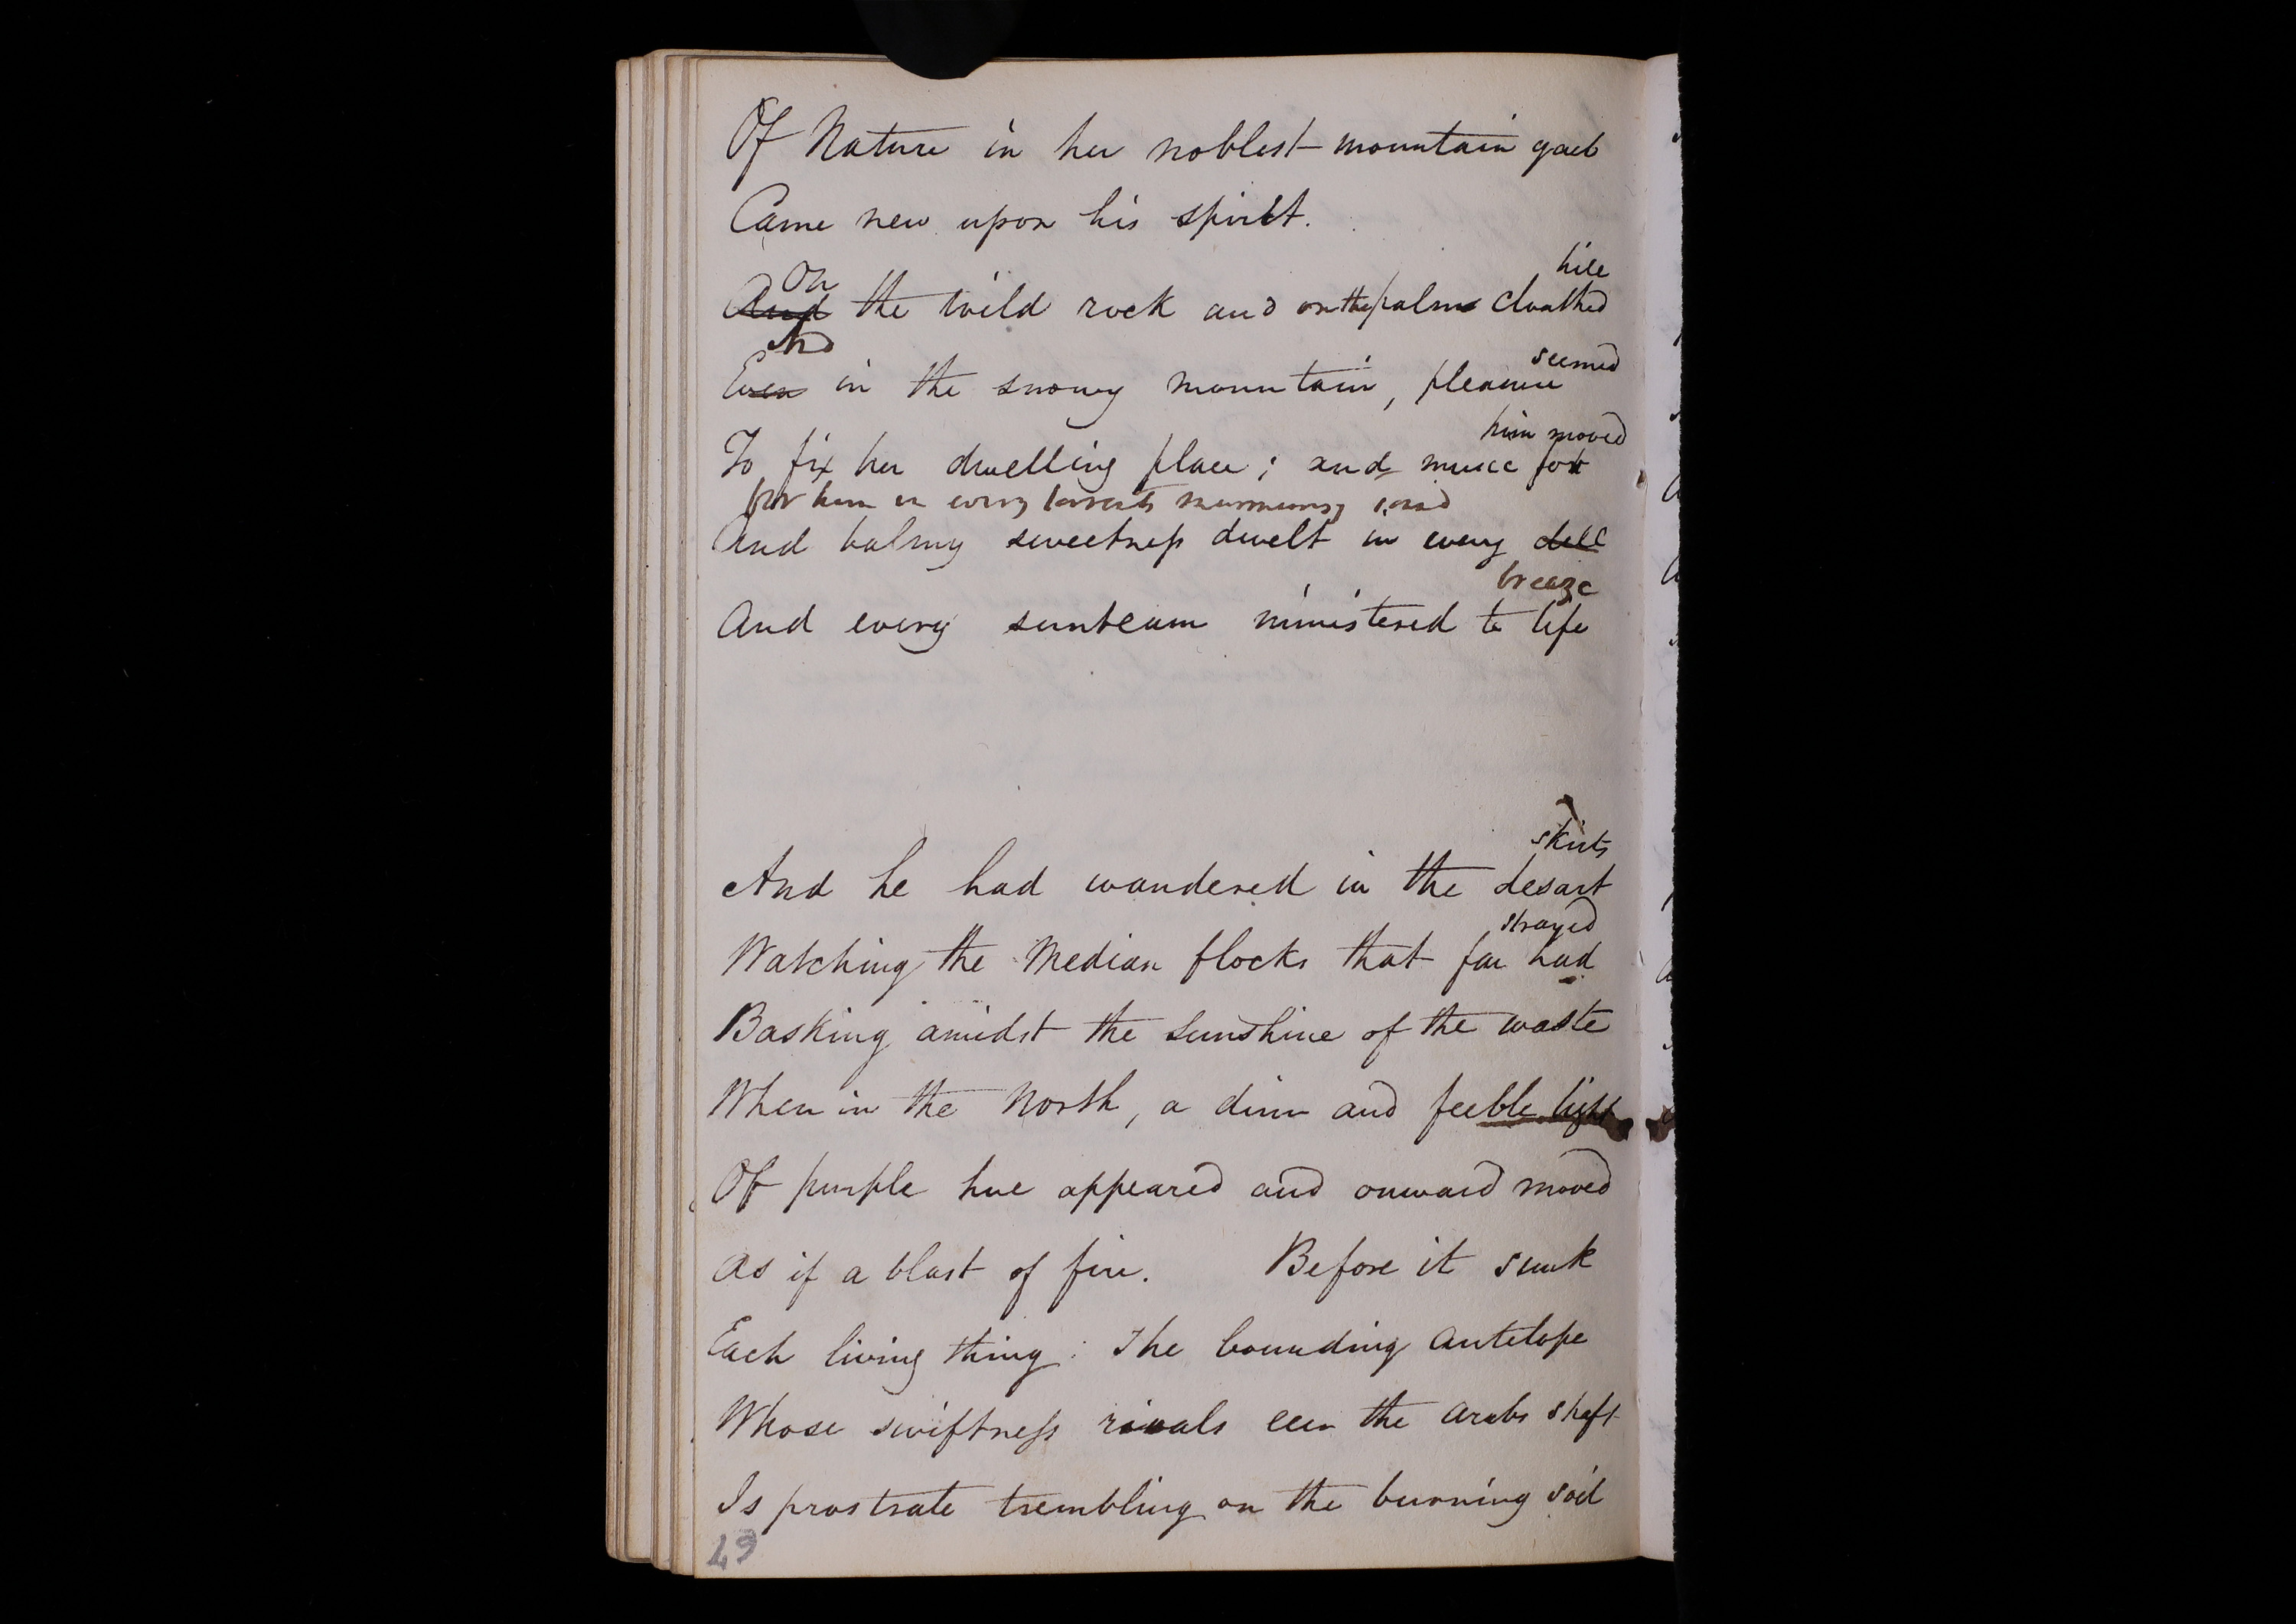 Of Nature in her noblest mountain garb
Came new upon his spirit.
On
hill
And the wild rock and on the palm cloathed
And
seemed
Even in the snowy mountain, pleasure
him moved
To fix her dwelling place; and music for
for him in every torrents murmuring sound
And balmy sweetness dwelt in every dell
breeze
And every sunbeam ministered to life
skirts
And he had wandered in the desart
strayed
Watching the Median flocks that far had
Basking amidst the sunshine of the waste
When in the North, a dim and feeble light
Of purple hue appeared and onward moved
As if a blast of fire. Before it sunk
Each living thing: The bounding antelope
Whose swiftness rivals een the arabs shaft
Is prostrate trembling on the burning soil